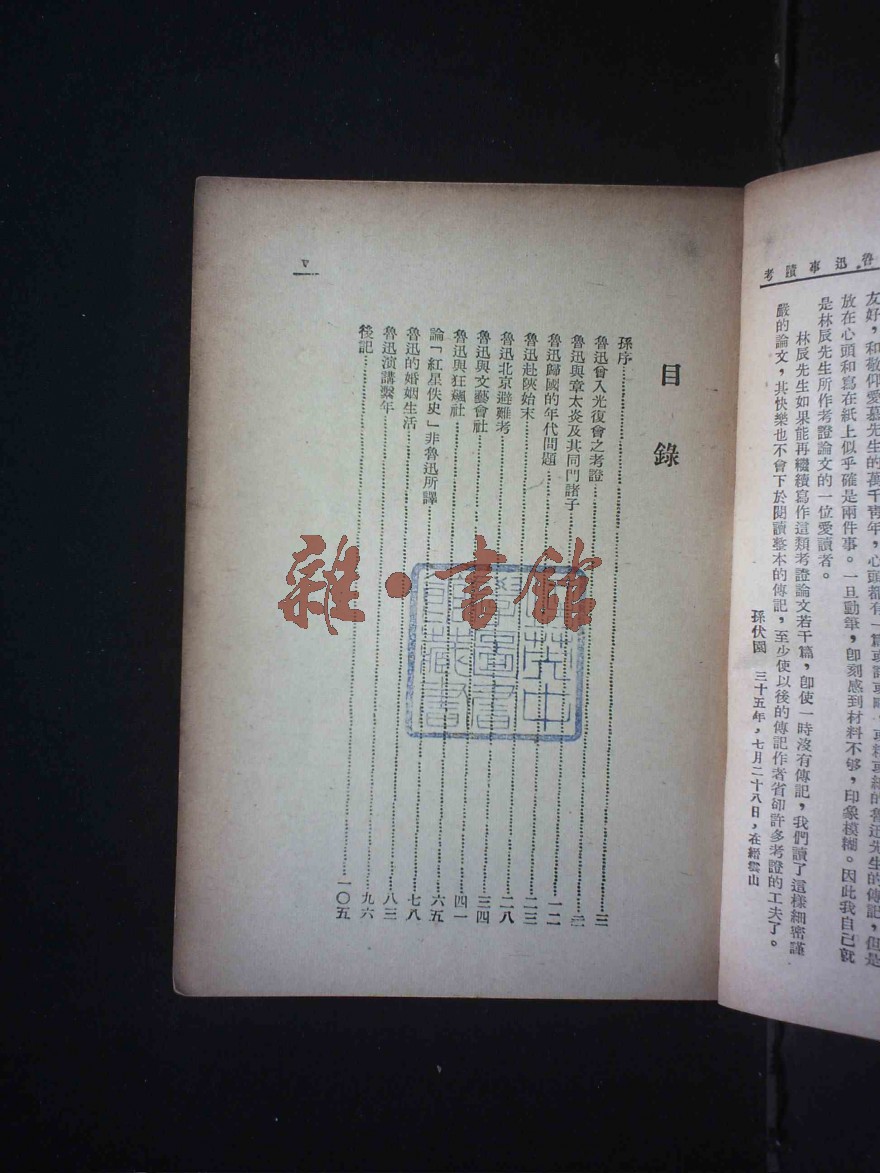 魯迅事蹟考
友好，和敬仰愛慕先生的萬千靑年，心頭都有一篇或詳或略，或粗或細的魯迅先生的傳記，但是
放在心頭和寫在紙上似乎確是兩件事。一旦動筆，卽刻感到材料不够，印象模糊。因此我自己就
是林辰先生所作考證論文的一位愛讀者。
林辰先生如果能再繼續寫作這類考證論文若干篇，卽使一時沒有傳記，我們讀了這樣細密謹
嚴的論文，其快樂也不會下於閱讀整本的傳記，至少使以後的傳記作者省卻許多考證的工夫了。
孫伏園　三十五年，七月二十八日，在縉雲山
目錄
孫序……三
魯迅曾入光復會之考證……
魯迅與章太炎及其同門諸子……一二
魯迅歸國的年代問題……二三
魯迅赴陝始末……二八
魯迅北京避難考……三四
魯迅與文藝會社……四一
魯迅與狂飆社……六五
論「紅星佚史」非魯迅所譯……七八
魯迅的婚姻生活……八三
魯迅演講繫年……九六
後記……一〇五
V
雜·書館